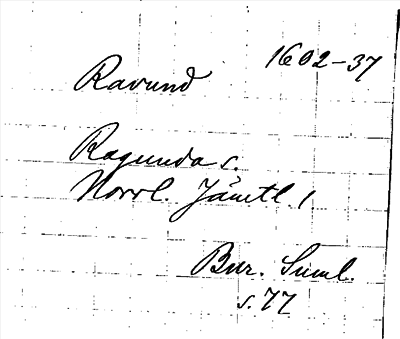 1602-37
Ravund
Ragunda s.
Norrl. Jämtl. l.
Bur. Suml.
s. 77